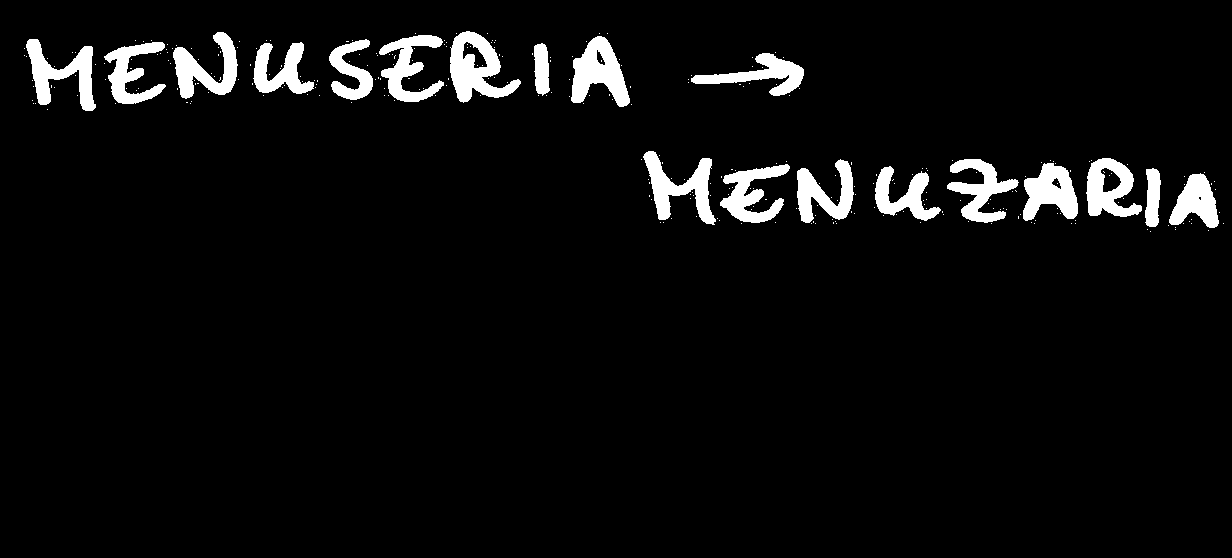 MENUSERIA →
MENUZARIA